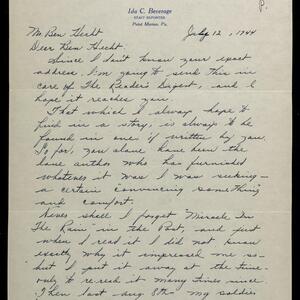 P.
Ida C. Beverage
STAFF REPORTER
Point Marion, Pa.
July 12, 1944
Mr. Ben Hecht
Dear Ben Hecht,
Since I don't know your exact
address, I'm going to send this in
care of The Reader's Digest, and I
hope it reaches you.
That which I always hope to
find in a story, is always to be
found in one if written by you.
So far, you alone have been the
lone author who has furnished
whatever it was I was seeking -
a certain "convincing something"
and comfort.
Never shall I forget "Miracle In
The Rain" in the Post, and just
when I read it I did not know
exactly why it impressed me so -
but I put it away at the time -
only to re-read it many times since.
Then last Aug 8th my soldier